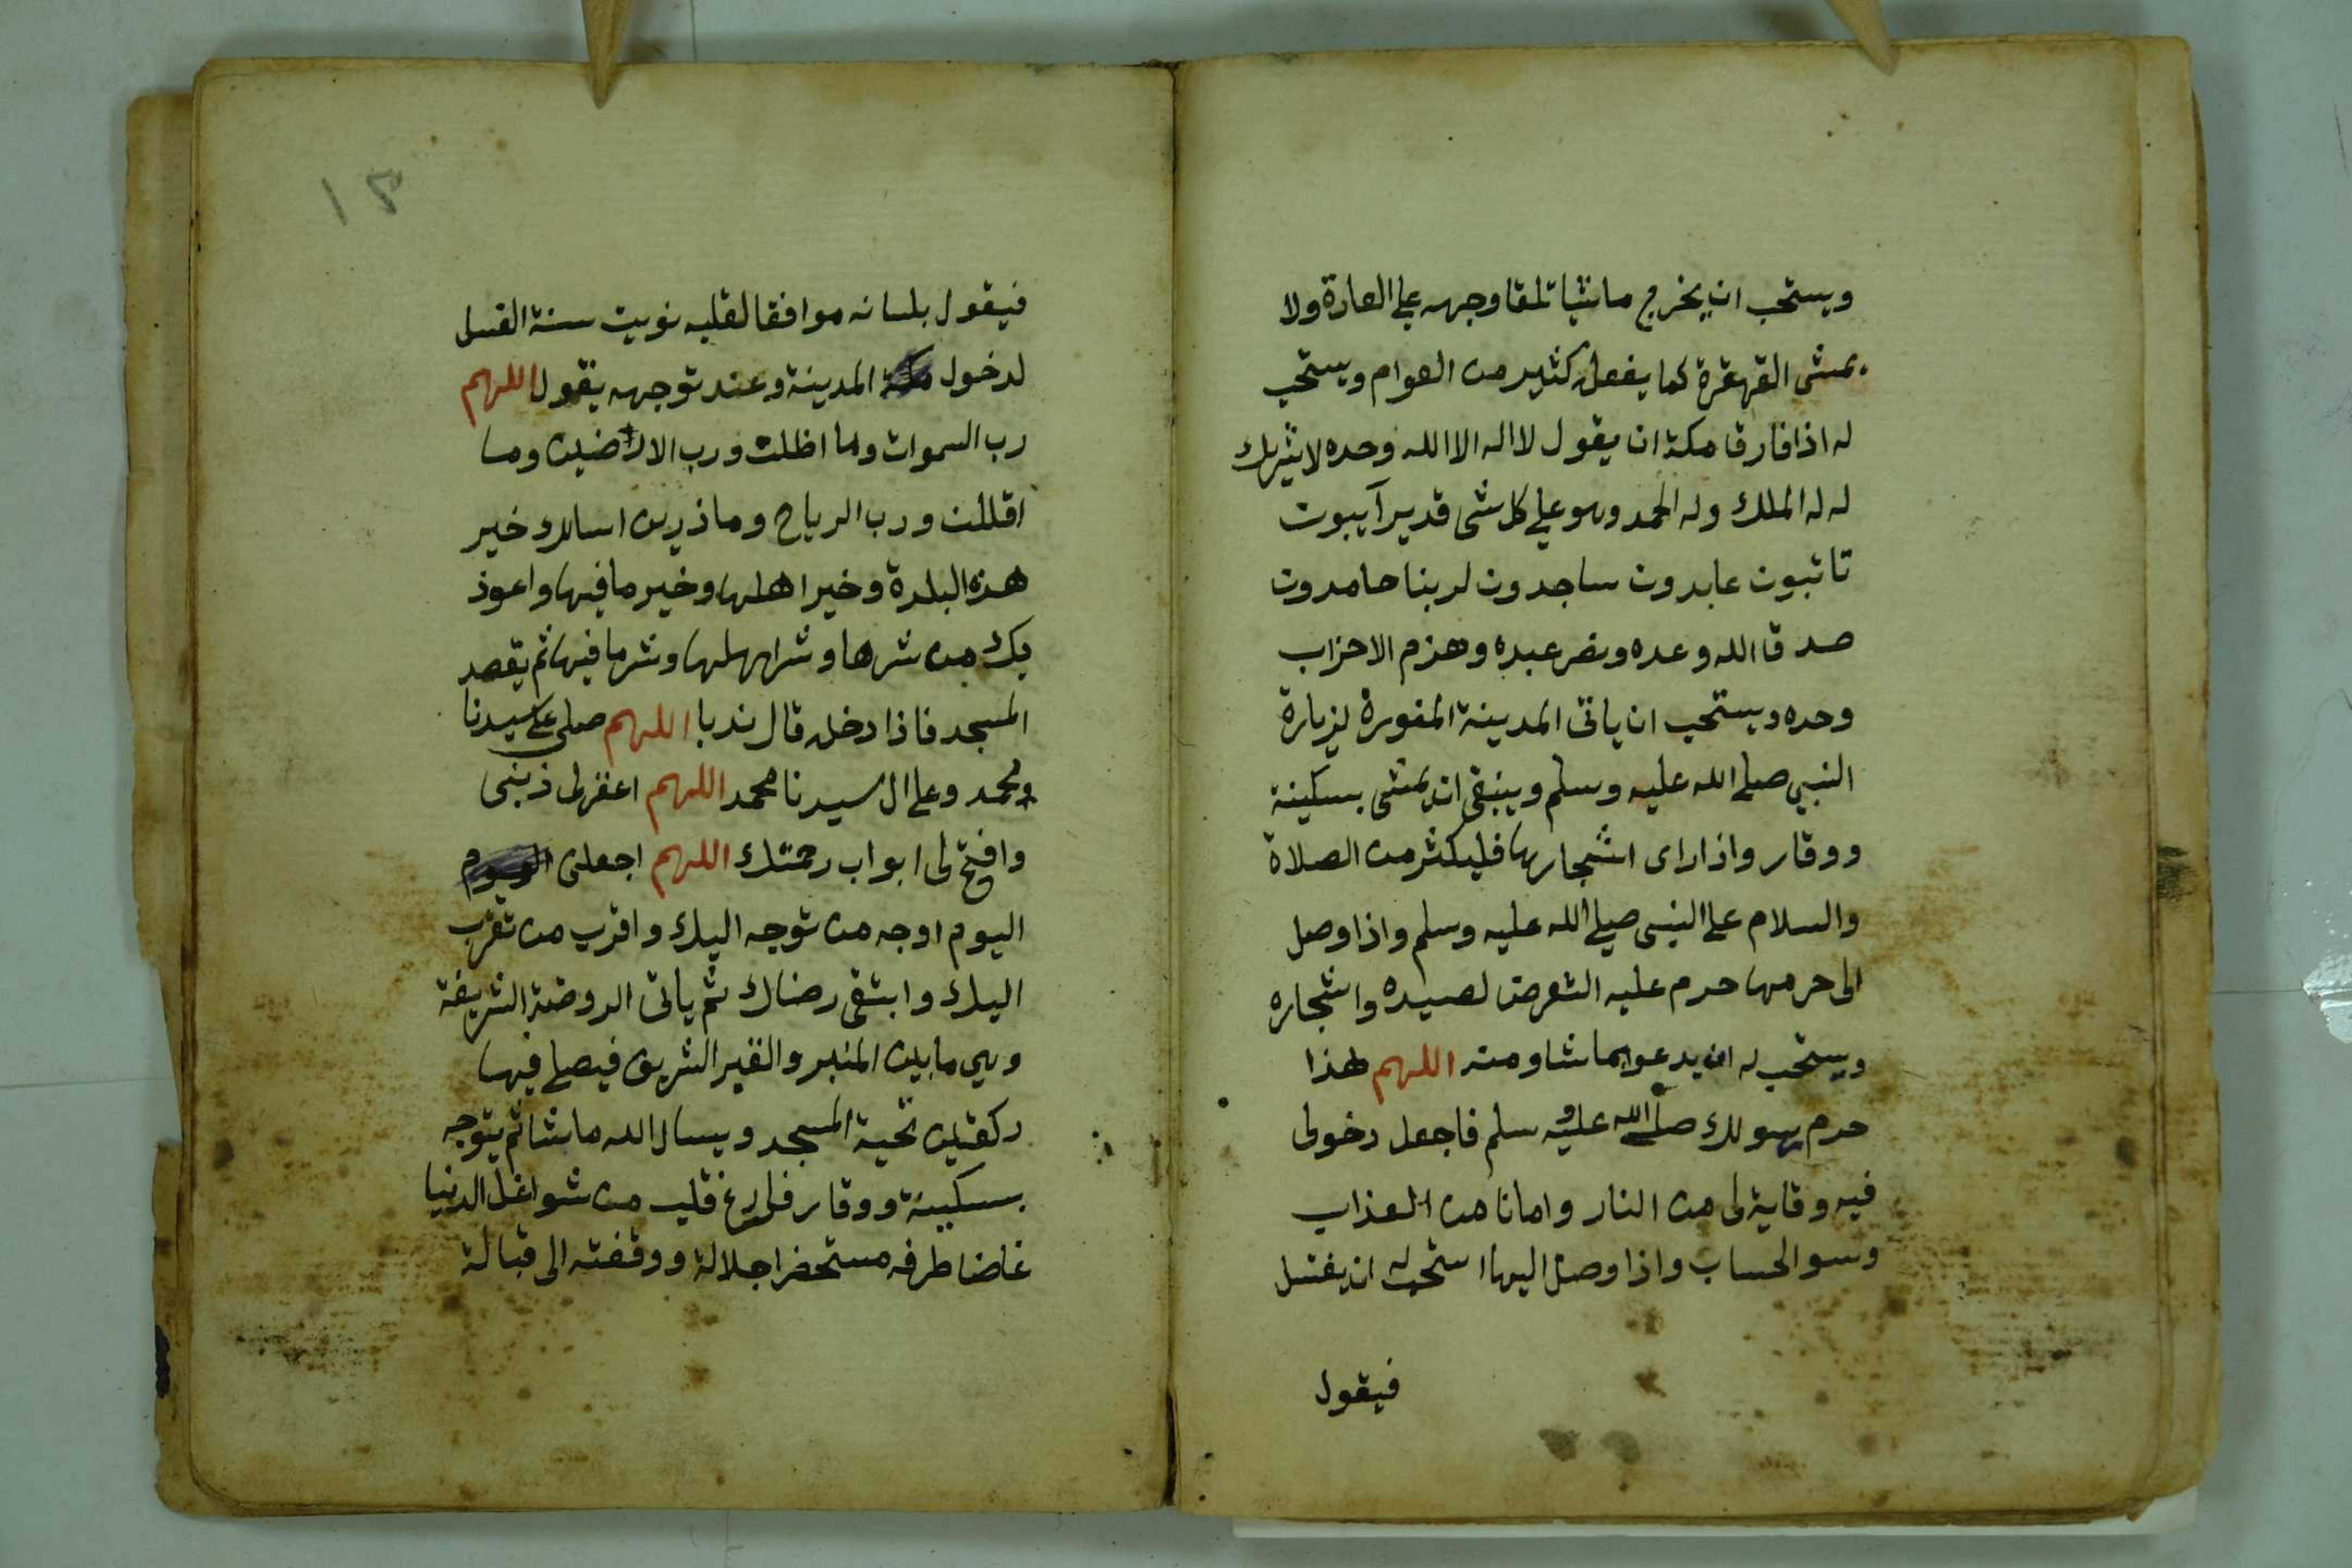 ويستحب ان يخرج ماشيا تلقا وجهه على العادة ولا
يمشى القهقرة كما يفعل كثير من العوام ويستحب
له اذا فارق مكة ان يقول لا اله الا الله وحده لا شريك
له له الملك وله الحمد وهو على كل شى قدير آيبون
تائبون عابدون ساجدون لربنا حامدون
صدق الله وعده ونصر عبده وهزم الاحزاب
وحده ويستحب ان ياتى المدينة المنورة لزيارة
النبي صلى الله عليه وسلم وينبغى ان يمشى بسكينة
ووقار واذا راى اشجارها فليكثر من الصلاة
والسلام على النبى صلى الله عليه وسلم واذا وصل
الى حرمها حرم عليه التعرض لصيده واشجاره
ويستحب له ان يدعو بما شا ومنه اللهم هذا
حرم رسولك صلى الله عليه وسلم فاجعل دخولى
فيه وقاية لى من النار وامانا من العذاب
وسو الحساب واذا وصل اليها استحب له ان يغتسل
فيقول
١٣
فيقول بلسانه موافقا لقلبه نويت سنة الغسل
لدخول المدينة وعند توجهه يقول اللهم
رب السموات وما اظلت ورب الاراضين وما
اقللت ورب الرياح وما ذرين اسالك خير
هذه البلدة وخير اهلها وخير ما فيها واعوذ
بك من شرها وشر اهلها وشر ما فيها ثم يقصد
المسجد فاذا دخله قال ندبا اللهم صلى على سيدنا
محمد وعلى ال سيدنا محمد اللهم اغفر لى ذنبى
وافتح لى ابواب رحمتك اللهم اجعلنى
اليوم اوجه من توجه اليك واقرب من تقرب
اليك وابتغى رضاك ثم ياتى الروضة الشريفة
وهي ما بين المنبر والقبر الشريف فيصلى فيها
ركعتين تحية المسجد ويسال الله ما شا ثم يتوجه
بسكينة ووقار قلب من شواغل الدنيا
غاضا طرفه مستحضرا جلالة ووقفته الى قبالة